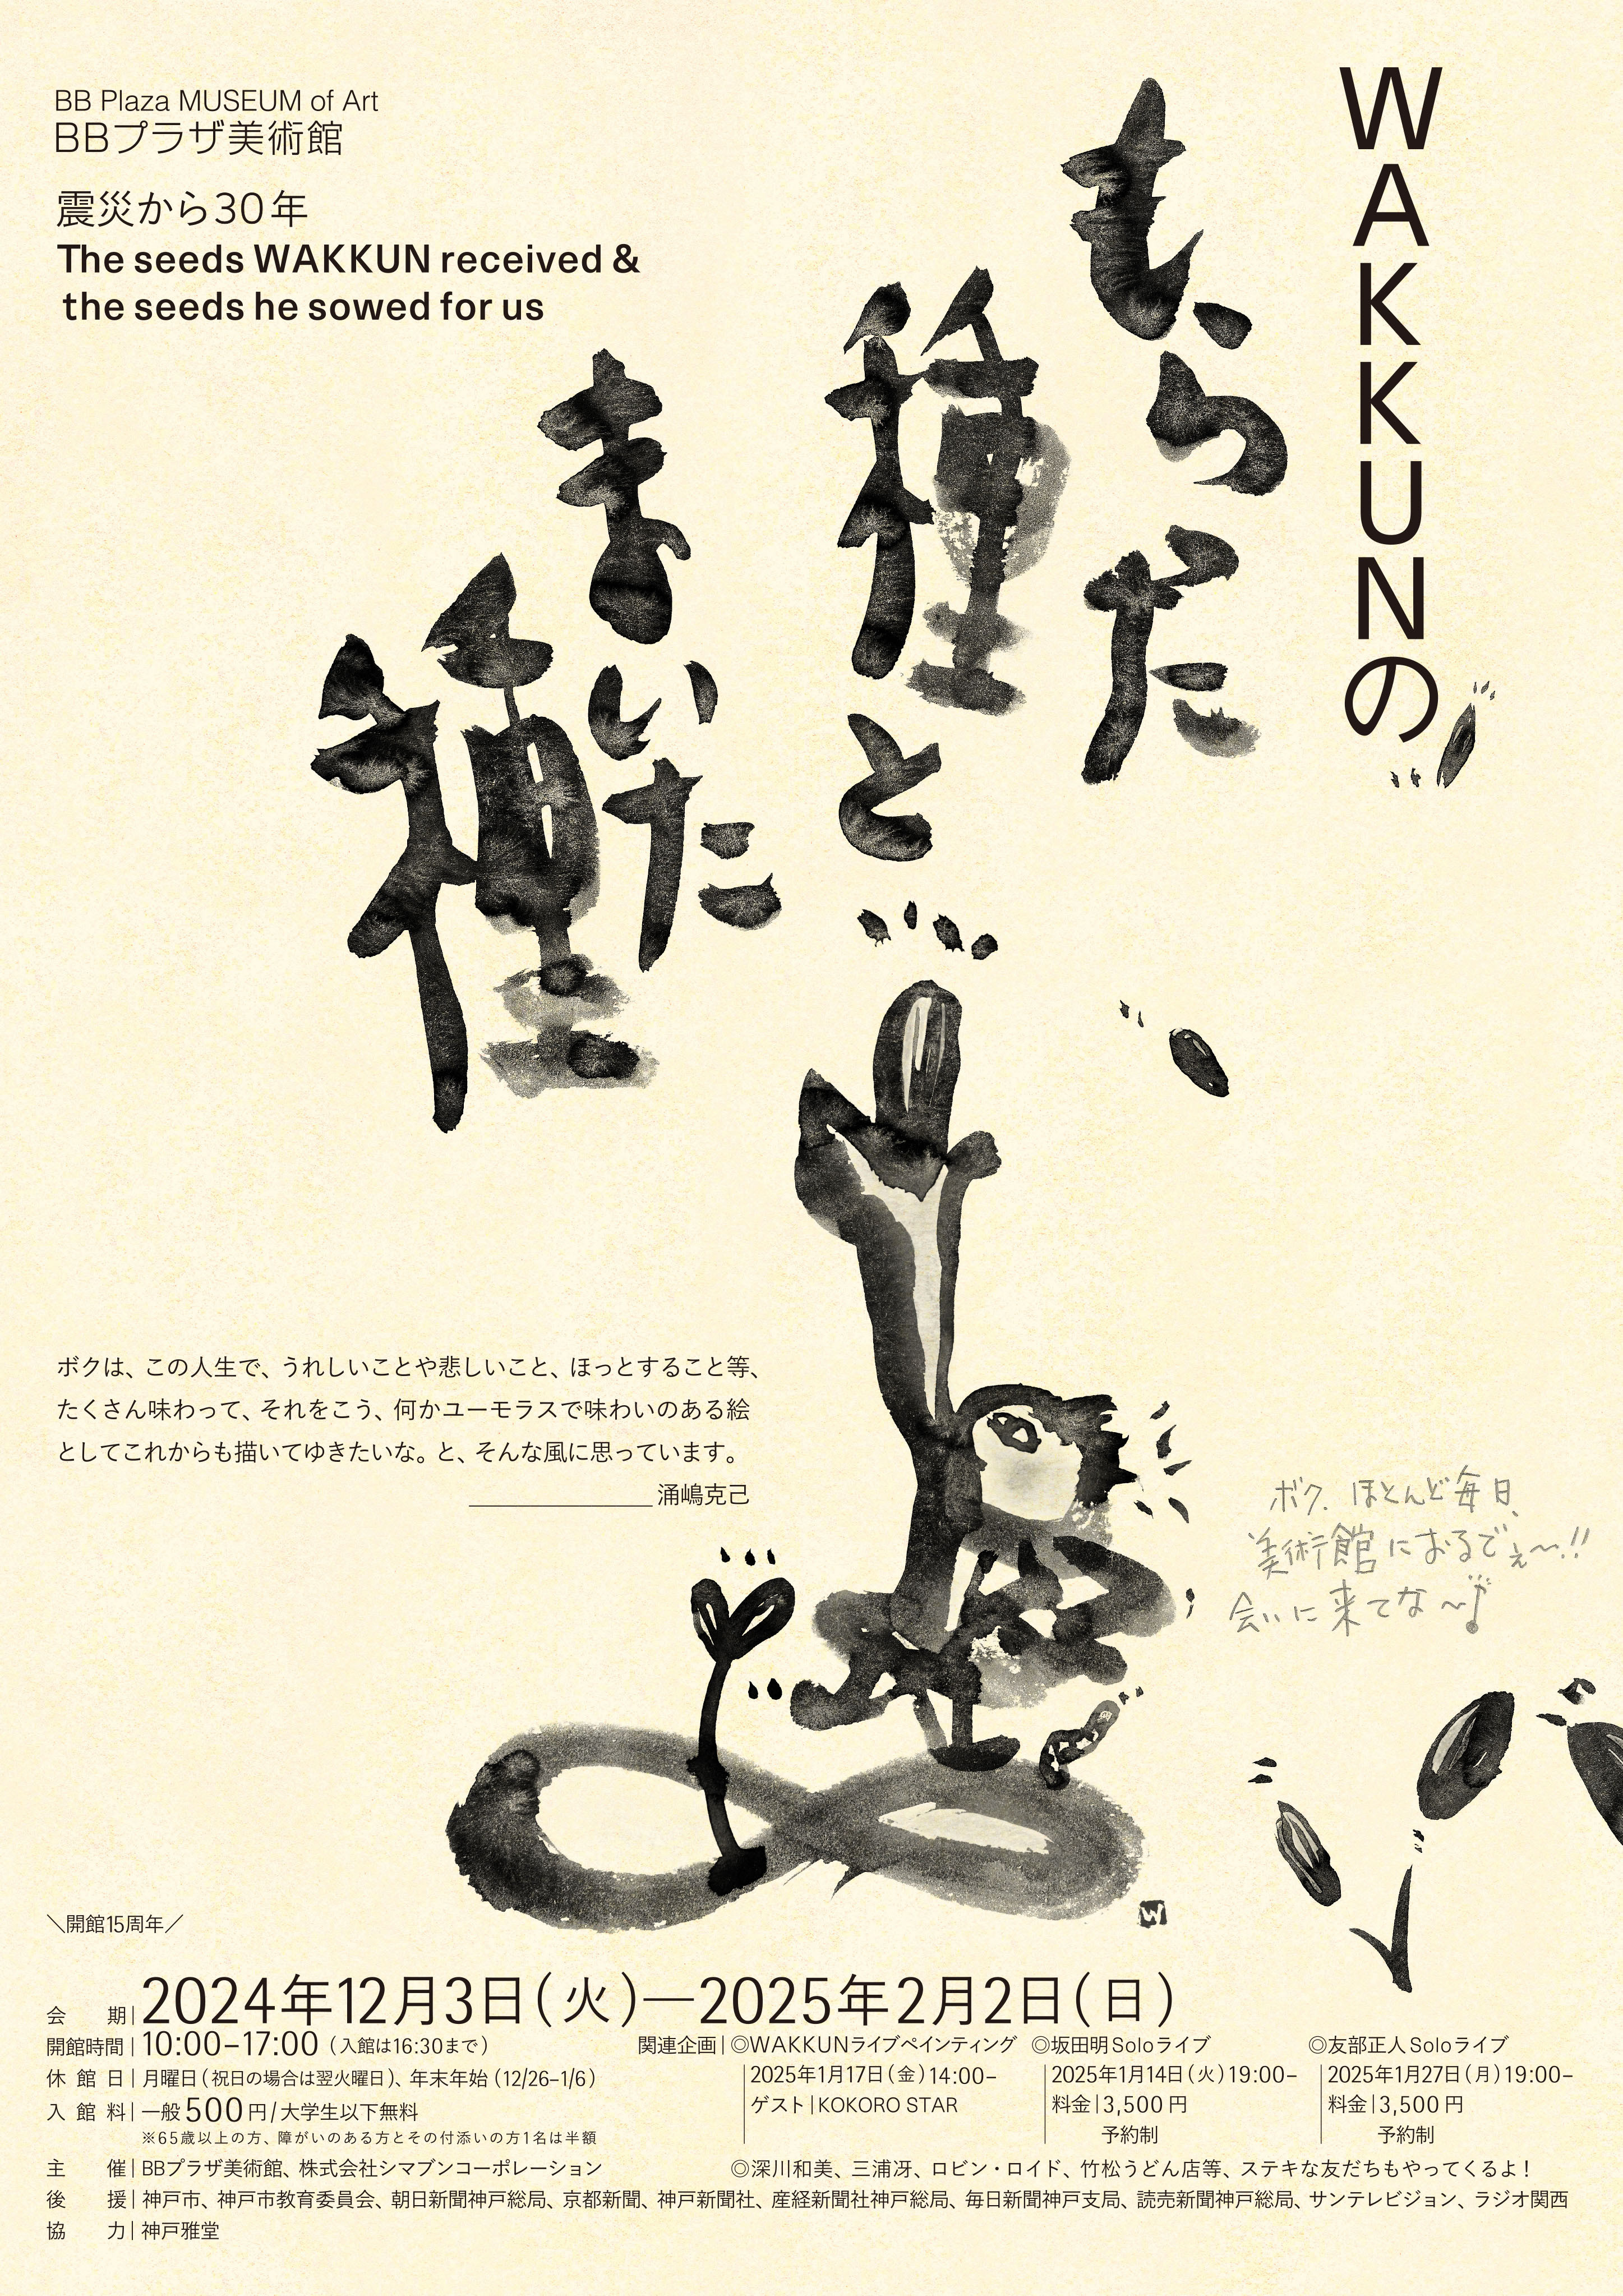 BB Plaza MUSEUM of Art
BBプラザ美術館
震災から30年
The seeds WAKKUN received &
the seeds he sowed for us
WAKKUNの
もらった
種と
まいた
種
ボクは、この人生で、うれしいことや悲しいこと、ほっとすること等、
たくさん味わって、それをこう、何かユーモラスで味わいのある絵
としてこれからも描いてゆきたいな。と、そんな風に思っています。
涌嶋克己
ボク、ほとんど毎日、
美術館におるでぇ〜!!
会いに来てな〜♪
W
＼開館15周年／
会期|2024年12月3日(火)—2025年2月2日(日)
開館時間|10:00–17:00（入館は16:30まで）
休館日|月曜日(祝日の場合は翌火曜日)、年末年始(12/26–1/6)
入館料|一般500円/大学生以下無料
※65歳以上の方、障がいのある方とその付添いの方1名は半額
関連企画|◎WAKKUNライブペインティング
2025年1月17日(金)14:00–
ゲスト|KOKORO STAR
◎坂田明Soloライブ
2025年1月14日(火)19:00–
料金|3,500円
予約制
◎友部正人Soloライブ
2025年1月27日(月)19:00–
料金|3,500円
予約制
◎深川和美、三浦冴、ロビン・ロイド、竹松うどん店等、ステキな友だちもやってくるよ！
主催|BBプラザ美術館、株式会社シマブンコーポレーション
後援|神戸市、神戸市教育委員会、朝日新聞神戸総局、京都新聞、神戸新聞社、産経新聞社神戸総局、毎日新聞神戸支局、読売新聞神戸総局、サンテレビジョン、ラジオ関西
協力|神戸雅堂